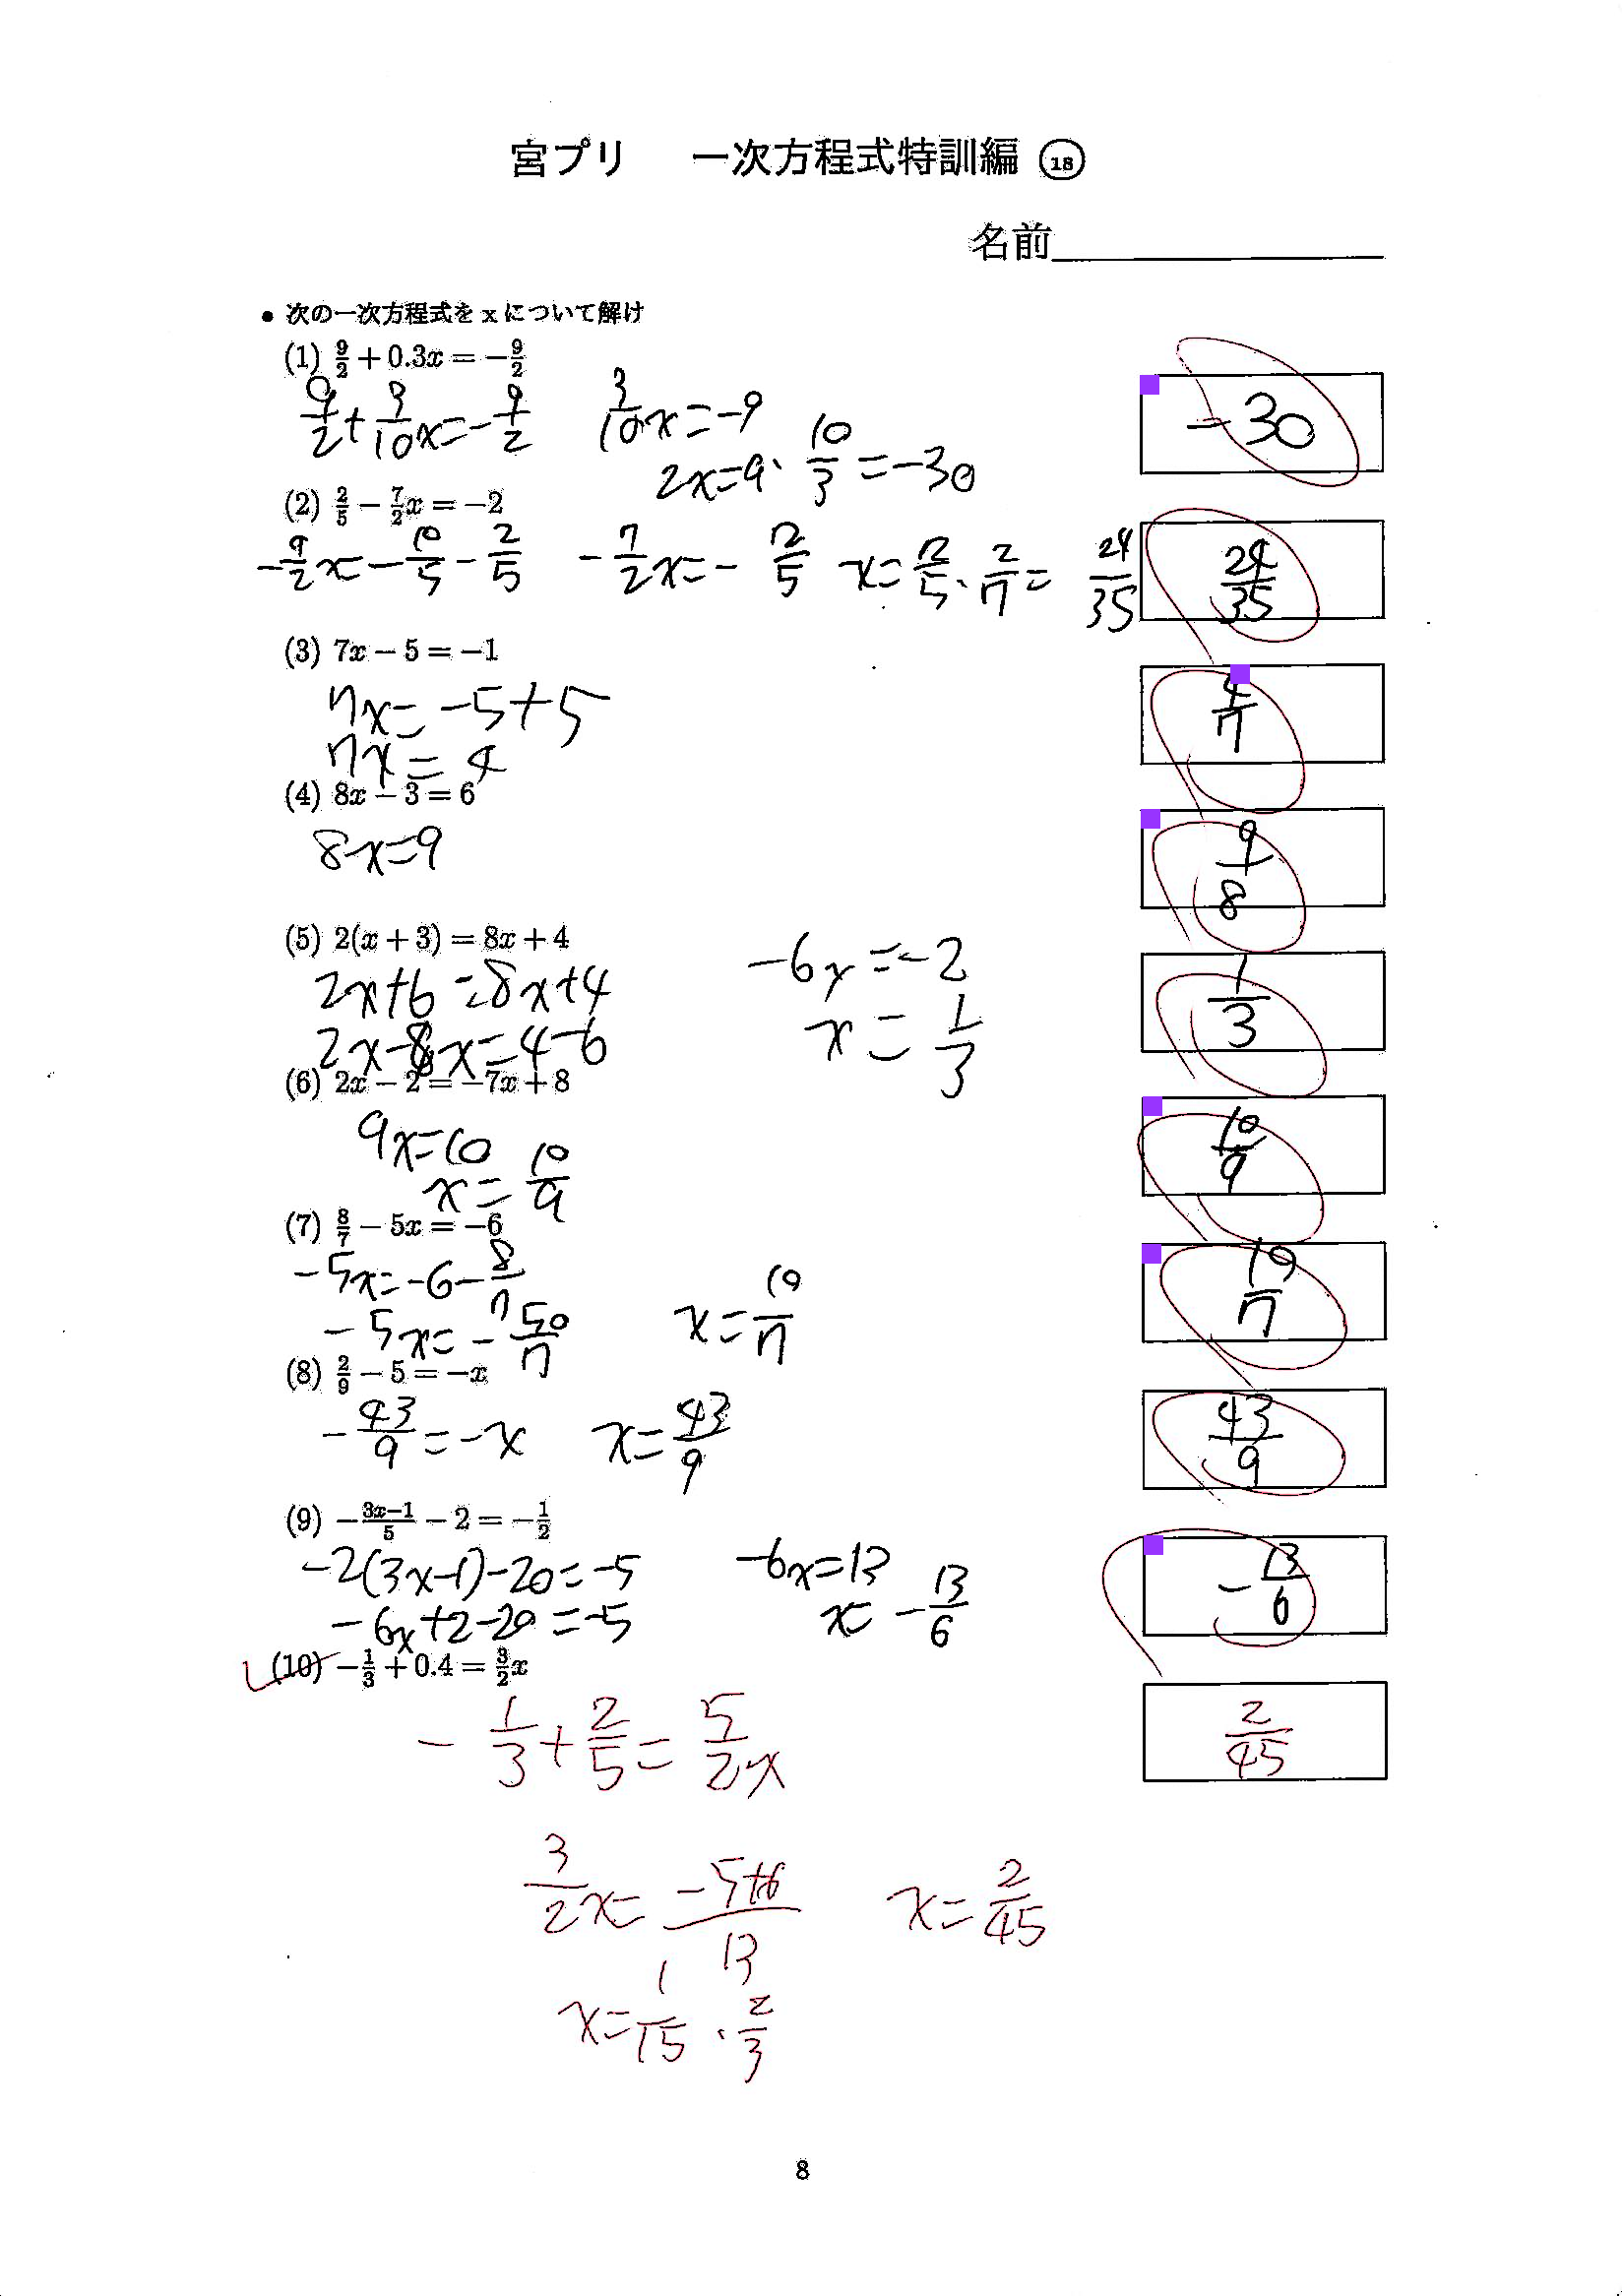 宮プリ 一次方程式特訓編 ⑱
名前
• 次の一次方程式を x について解け
(1) 9/2 + 0.3x = -9/2
9/2 + 3/10 x = -9/2 3/10 x = -9
2x = 9 · 10/3 = -30
-30
(2) 2/5 - 7/2 x = -2
-9/2 x = -10/5 - 2/5 -7/2 x = - 12/5 x = 12/5 · 2/7 = 24/35
24/35
(3) 7x - 5 = -1
7x = -5 + 5
7x = 4
4/7
(4) 8x - 3 = 6
8x = 9
9/8
(5) 2(x + 3) = 8x + 4
2x + 6 = 8x + 4 -6x = -2
2x - 8x = 4 - 6 x = 1/3
1/3
(6) 2x - 2 = -7x + 8
9x = 10
x = 10/9
10/9
(7) 8/7 - 5x = -6
-5x = -6 - 8/7
-5x = -50/7 x = 10/7
10/7
(8) 2/9 - 5 = -x
-43/9 = -x x = 43/9
43/9
(9) -(3x-1)/5 - 2 = -1/2
-2(3x-1) - 20 = -5 -6x = 13
-6x + 2 - 20 = -5 x = -13/6
-13/6
(10) -1/3 + 0.4 = 3/2 x
-1/3 + 2/5 = 5/2 x
2/45
3/2 x = (-5+6)/13 x = 2/45
x = 1/15 · 2/3
8